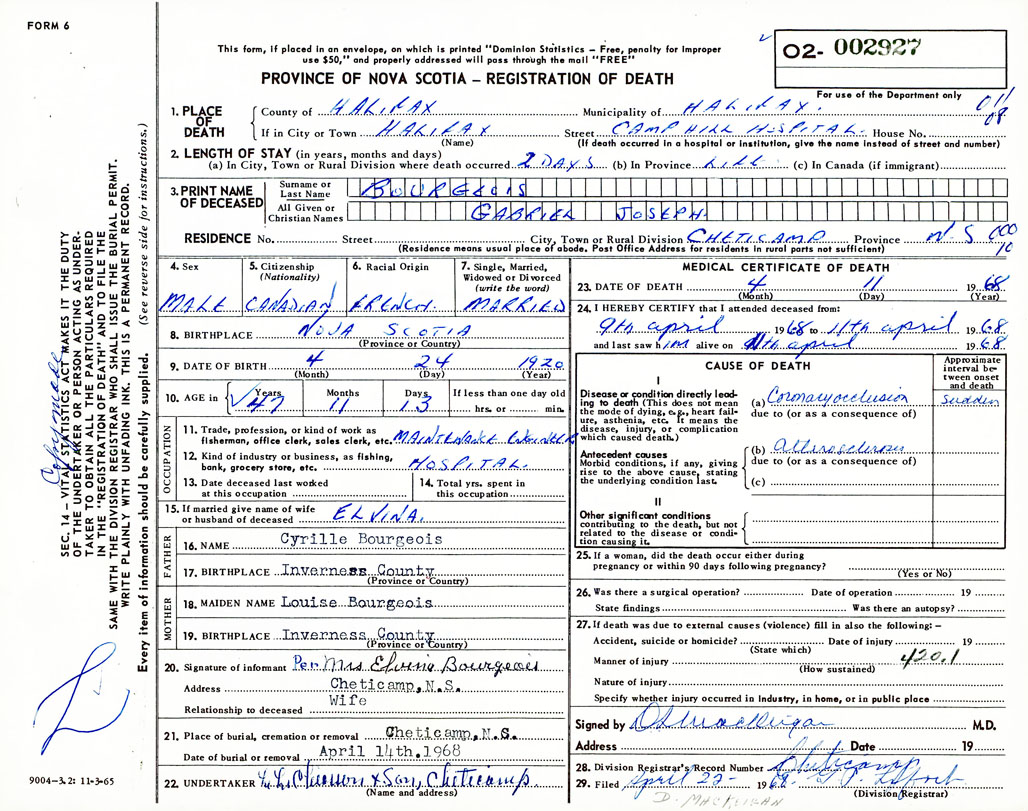 FORM 6
This form, if placed in an envelope, on which is printed "Dominion Statistics – Free, penalty for improper
use $50," and properly addressed will pass through the mail "FREE"
PROVINCE OF NOVA SCOTIA – REGISTRATION OF DEATH
02- 002927
For use of the Department only
011
08
1. PLACE OF DEATH
County of HALIFAX Municipality of HALIFAX.
If in City or Town HALIFAX Street CAMP HILL HOSPITAL. House No.
(Name) (If death occurred in a hospital or institution, give the name instead of street and number)
2. LENGTH OF STAY (in years, months and days)
(a) In City, Town or Rural Division where death occurred 2 DAYS (b) In Province LIFE (c) In Canada (if immigrant)
3. PRINT NAME OF DECEASED
Surname or Last Name BOURGEOIS
All Given or Christian Names GABRIEL JOSEPH.
RESIDENCE No. Street City, Town or Rural Division CHETICAMP Province N.S 000
(Residence means usual place of abode. Post Office Address for residents in rural parts not sufficient) 10
4. Sex MALE
5. Citizenship (Nationality) CANADIAN
6. Racial Origin FRENCH.
7. Single, Married, Widowed or Divorced (write the word) MARRIED
8. BIRTHPLACE NOVA SCOTIA
(Province or Country)
9. DATE OF BIRTH 4 24 1920
(Month) (Day) (Year)
10. AGE in Years 47 Months 11 Days 13 If less than one day old hrs. or min.
OCCUPATION
11. Trade, profession, or kind of work as
fisherman, office clerk, sales clerk, etc. MAINTENANCE ENGINEER
12. Kind of industry or business, as fishing,
bank, grocery store, etc. HOSPITAL.
13. Date deceased last worked
at this occupation
14. Total yrs. spent in
this occupation
15. If married give name of wife
or husband of deceased ELVINA.
FATHER
16. NAME Cyrille Bourgeois
17. BIRTHPLACE Inverness County
(Province or Country)
MOTHER
18. MAIDEN NAME Louise Bourgeois
19. BIRTHPLACE Inverness County
(Province or Country)
20. Signature of informant Per Mrs Elvina Bourgeois
Address Cheticamp, N.S.
Relationship to deceased Wife
21. Place of burial, cremation or removal Cheticamp, N.S.
Date of burial or removal April 14th, 1968
22. UNDERTAKER & Son, Cheticamp
(Name and address)
MEDICAL CERTIFICATE OF DEATH
23. DATE OF DEATH 4 11 1968
(Month) (Day) (Year)
24. I HEREBY CERTIFY that I attended deceased from:
9th april 1968 to 11th april 1968
and last saw him alive on 11th april 1968
CAUSE OF DEATH
Approximate interval between onset and death
I
Disease or condition directly leading
to death (This does not mean
the mode of dying, e.g., heart failure,
asthenia, etc. It means the
disease, injury, or complication
which caused death.)
(a) Coronary occlusion Sudden
due to (or as a consequence of)
Antecedent causes
Morbid conditions, if any, giving
rise to the above cause, stating
the underlying condition last.
(b) atherosclerosis
due to (or as a consequence of)
(c)
II
Other significant conditions
contributing to the death, but not
related to the disease or condition
causing it.
25. If a woman, did the death occur either during
pregnancy or within 90 days following pregnancy?
(Yes or No)
26. Was there a surgical operation? Date of operation 19
State findings Was there an autopsy?
27. If death was due to external causes (violence) fill in also the following: –
Accident, suicide or homicide? Date of injury 19
(State which)
Manner of injury 420.1
(How sustained)
Nature of injury
Specify whether injury occurred in Industry, in home, or in public place
Signed by M.D.
Address Date 19
28. Division Registrar's Record Number Cheticamp
29. Filed April 22- 1968
(Division Registrar)
D. MACKEIGAN
SEC. 14 – VITAL STATISTICS ACT MAKES IT THE DUTY
OF THE UNDERTAKER OR PERSON ACTING AS UNDERTAKER
TO OBTAIN ALL THE PARTICULARS REQUIRED
IN THE "REGISTRATION OF DEATH" AND TO FILE THE
SAME WITH THE DIVISION REGISTRAR WHO SHALL ISSUE THE BURIAL PERMIT.
WRITE PLAINLY WITH UNFADING INK. THIS IS A PERMANENT RECORD.
Every item of information should be carefully supplied. (See reverse side for instructions.)
9004-3.2: 11-3-65